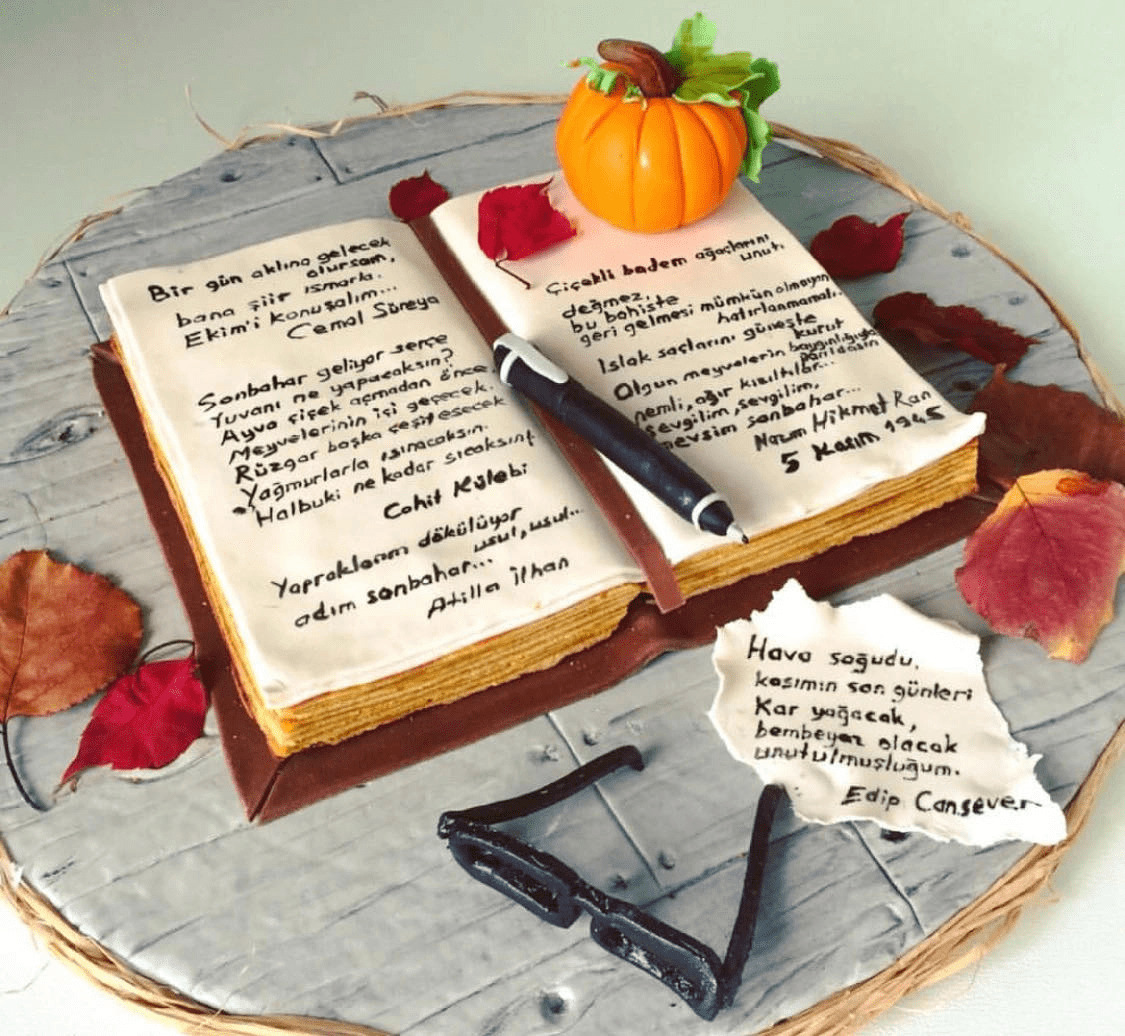 Bir gün aklına gelecek
olursam,
bana şiir ısmarla.
Ekim'i konuşalım...
Cemal Süreya
Sonbahar geliyor serçe
Yuvanı ne yapacaksın?
Ayva çiçek açmadan önce
Meyvelerinin içi geçecek.
Rüzgar başka çeşit esecek
Yağmurlarla ısınacaksın.
Halbuki ne kadar sıcaksın!
Cahit Külebi
Yapraklarım dökülüyor
usul, usul...
adım sonbahar...
Atilla İlhan
Çiçekli badem ağaçlarını
unut.
değmez,
bu bahiste
geri gelmesi mümkün olmayan
hatırlanmamalı..
Islak saçlarını güneşte
kurut
Olgun meyvelerin baygınlığıyla
parıldasın
nemli, ağır kızıltılar...
sevgilim, sevgilim,
mevsim sonbahar...
Nazım Hikmet Ran
5 Kasım 1945
Hava soğudu,
kasımın son günleri
Kar yağacak,
bembeyaz olacak
unutulmuşluğum.
Edip Cansever